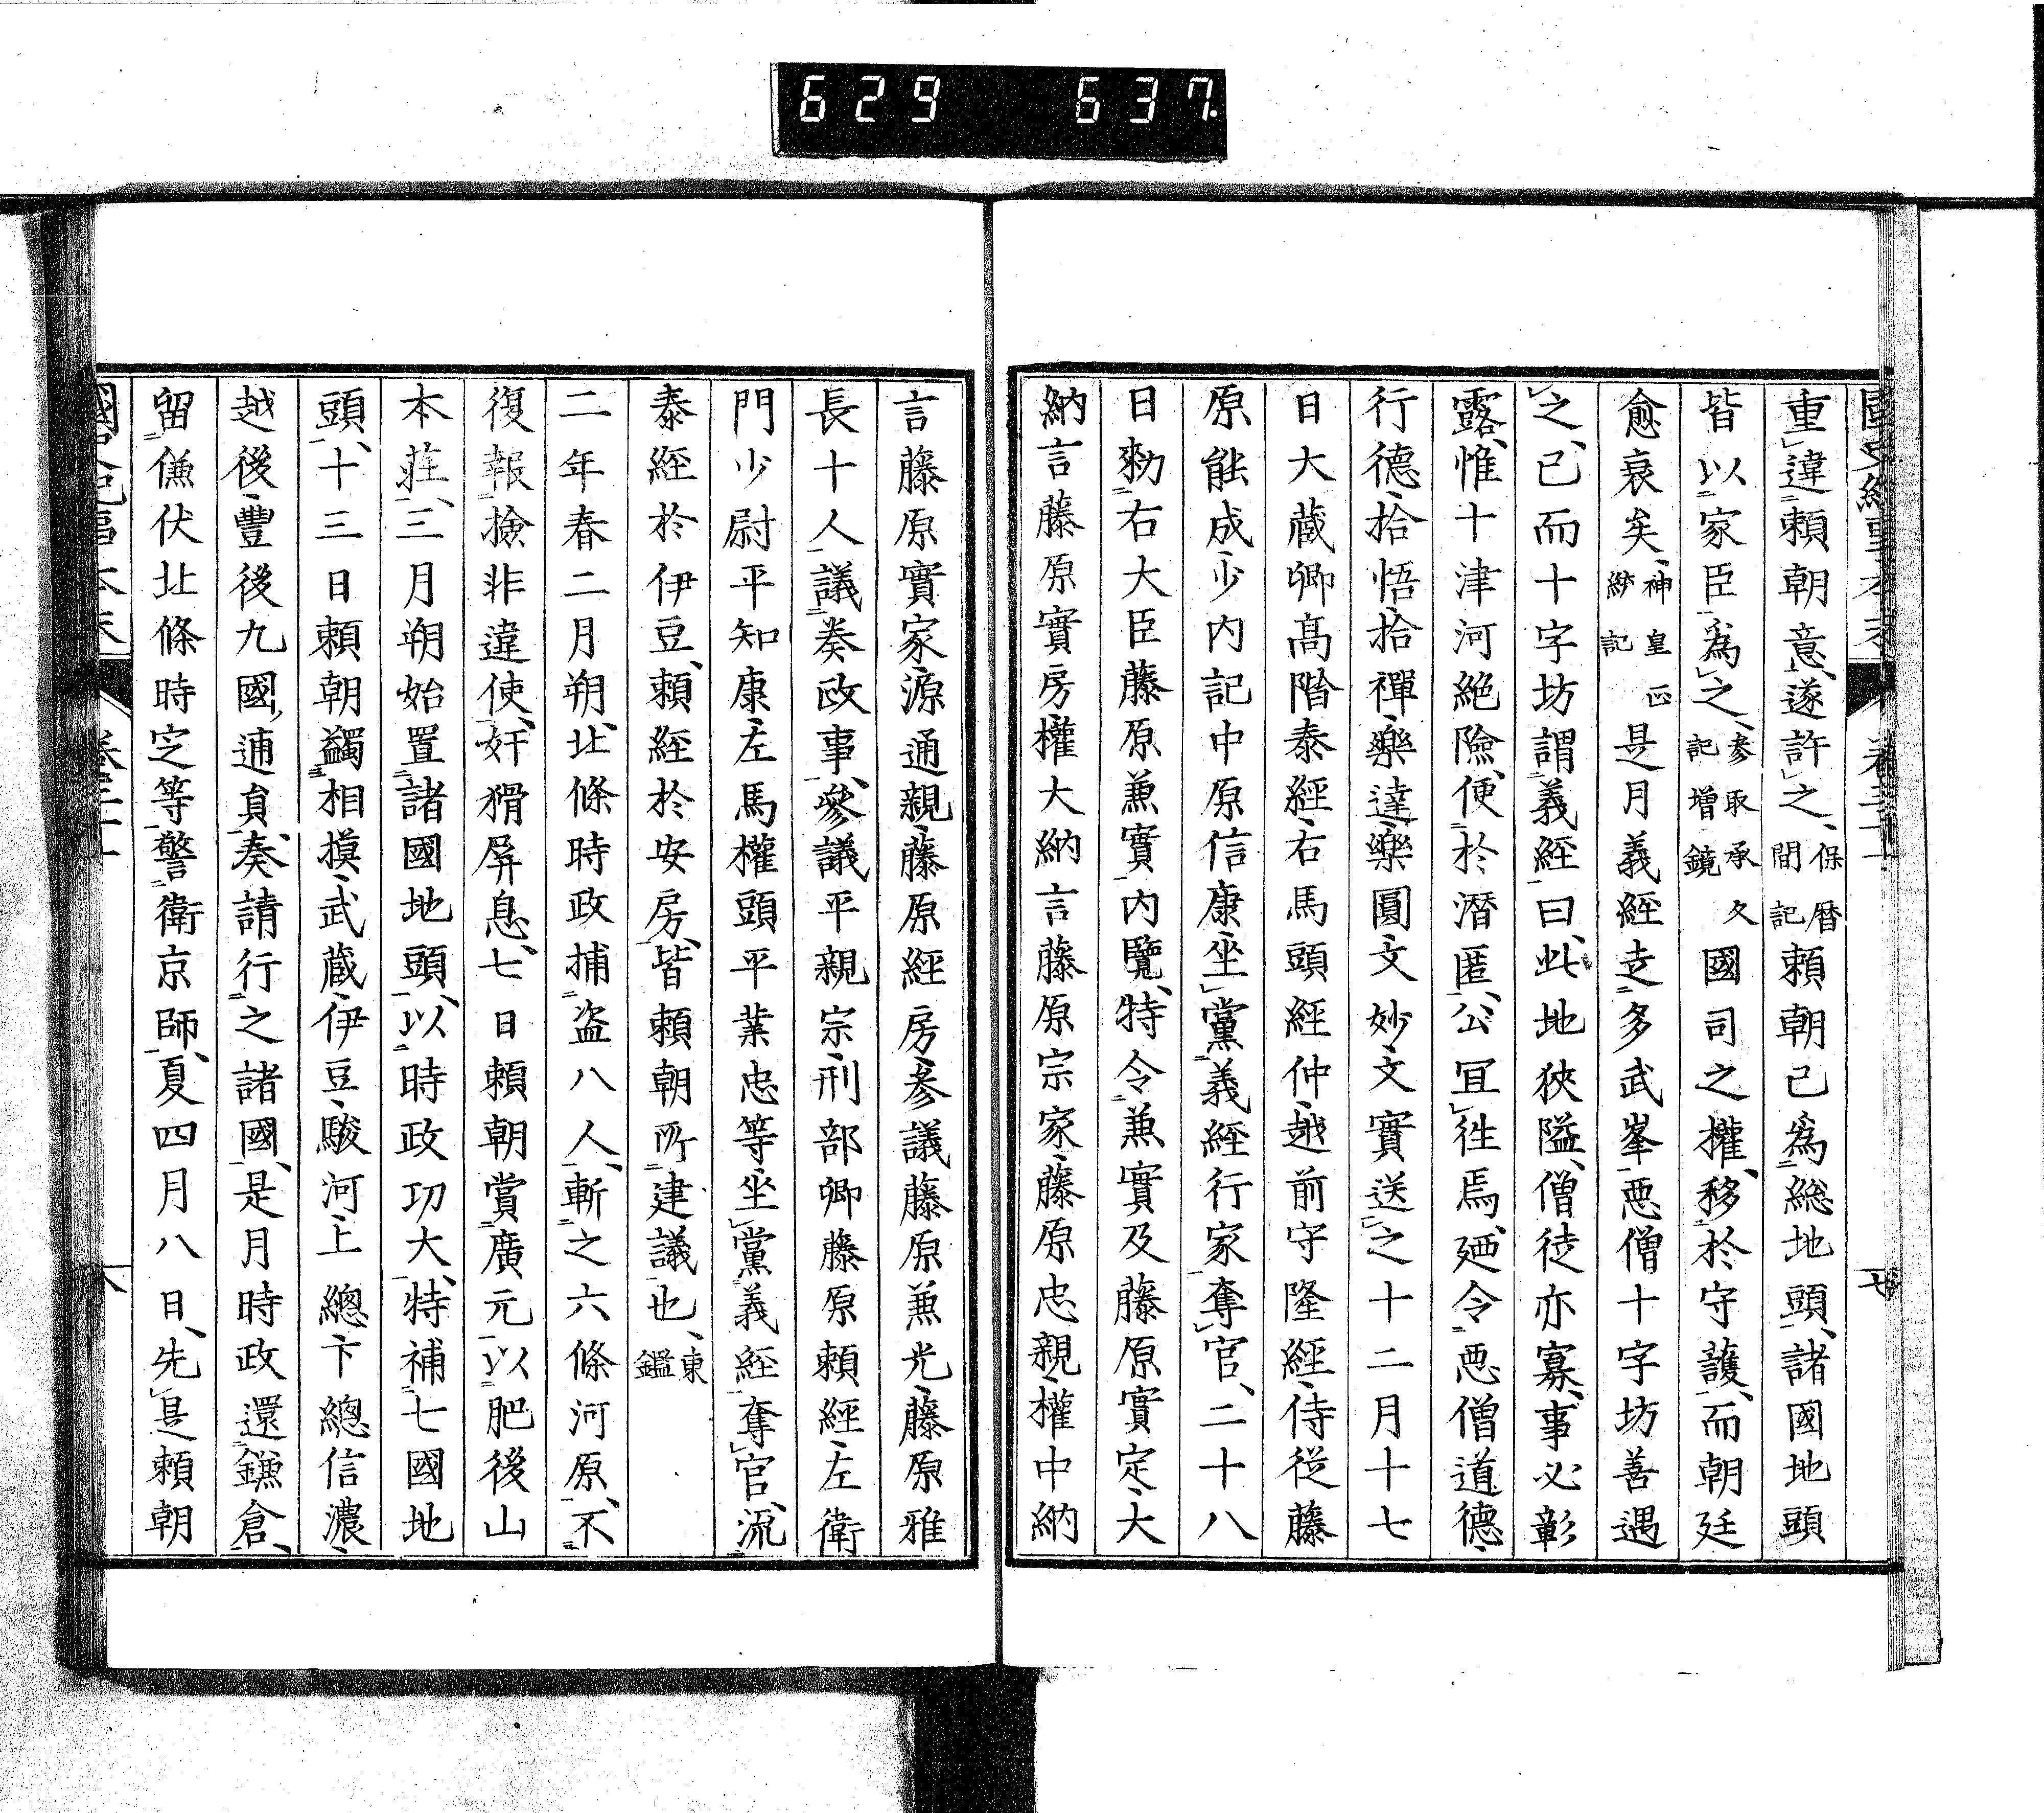 629 637
重違賴朝意、遂許之、保暦間記賴朝已為総地頭、諸國地頭
皆以家臣為之、參取承久記增鏡國司之權、移於守護、而朝廷
愈衰矣、神皇正統記是月義經走多武峯、悪僧十字坊善遇
之、已而十字坊謂義經曰、此地狹隘、僧徒亦寡、事必彰
露、惟十津河絶險、便於潛匿、公冝徃焉、廼令悪僧道德、
行德、拾悟、拾禪、樂達、樂圓、文妙、文實送之、十二月十七
日大藏卿髙階泰經、右馬頭經仲、越前守隆經、侍從藤
原能成、少内記中原信康、坐黨義經行家奪官、二十八
日勑右大臣藤原兼實内覽、特令兼實及藤原實定、大
納言藤原實房、權大納言藤原宗家、藤原忠親、權中納
言藤原實家、源通親、藤原經房、參議藤原兼光、藤原雅
長十人、議奏政事、參議平親宗、刑部卿藤原賴經、左衛
門少尉平知康、左馬權頭平業忠等坐黨義經奪官、流
泰經於伊豆、賴經於安房、皆賴朝所建議也、東鑑
二年春二月朔、北條時政捕盗八人、斬之六條河原、不
復報撿非違使、奸猾屏息、七日賴朝賞廣元、以肥後山
本莊、三月朔始置諸國地頭、以時政功大、特補七國地
頭、十三日賴朝蠲相摸、武藏、伊豆、駿河、上總、下總、信濃、
越後、豐後九國逋負、奏請行之諸國、是月時政還鎌倉、
留傔伏北條時定等、警衛京師、夏四月八日、先是賴朝